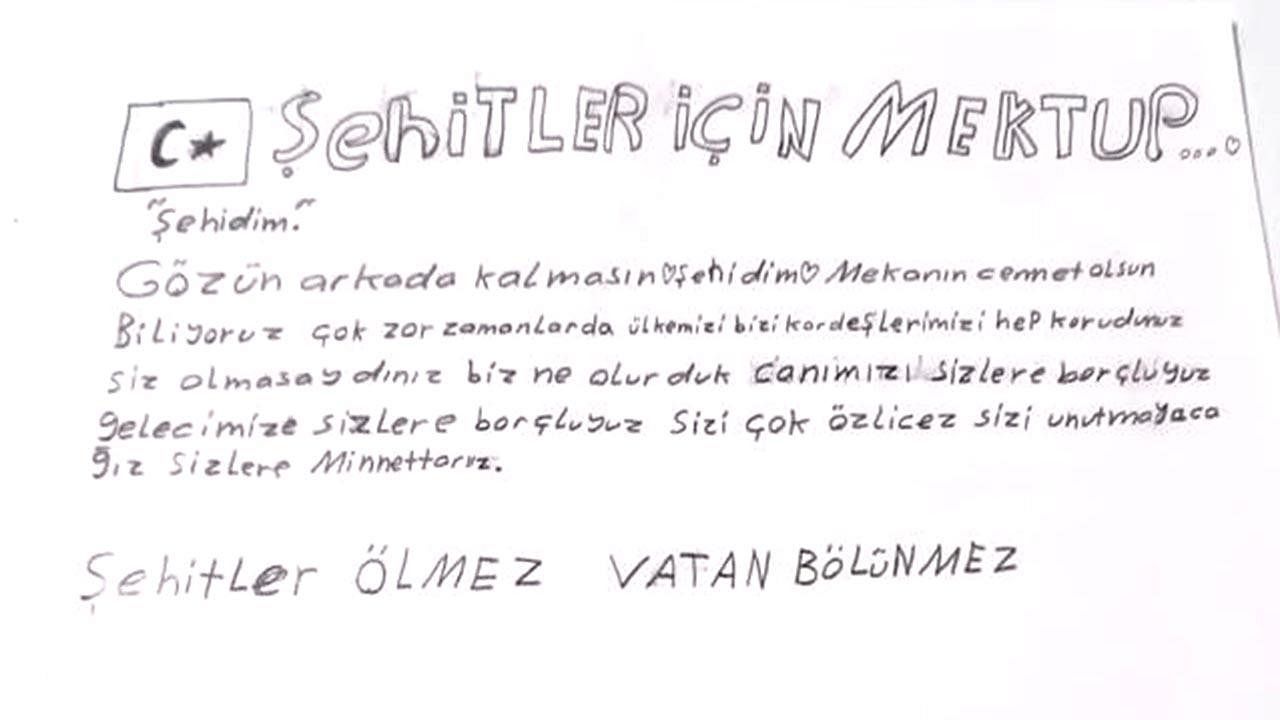 ŞehiTLER İÇİN MEKTUP...♡
"Şehidim."
Gözün arkada kalmasın♡şehidim♡ Mekanın cennet olsun
Biliyoruz çok zor zamanlarda ülkemizi bizi kardeşlerimizi hep korudunuz
siz olmasaydınız biz ne olurduk canımızı sizlere borçluyuz
gelecimize sizlere borçluyuz Sizi çok özlicez sizi unutmayaca
ğız Sizlere Minnettarız.
Şehitler ÖLMEZ VATAN BÖLÜNMEZ